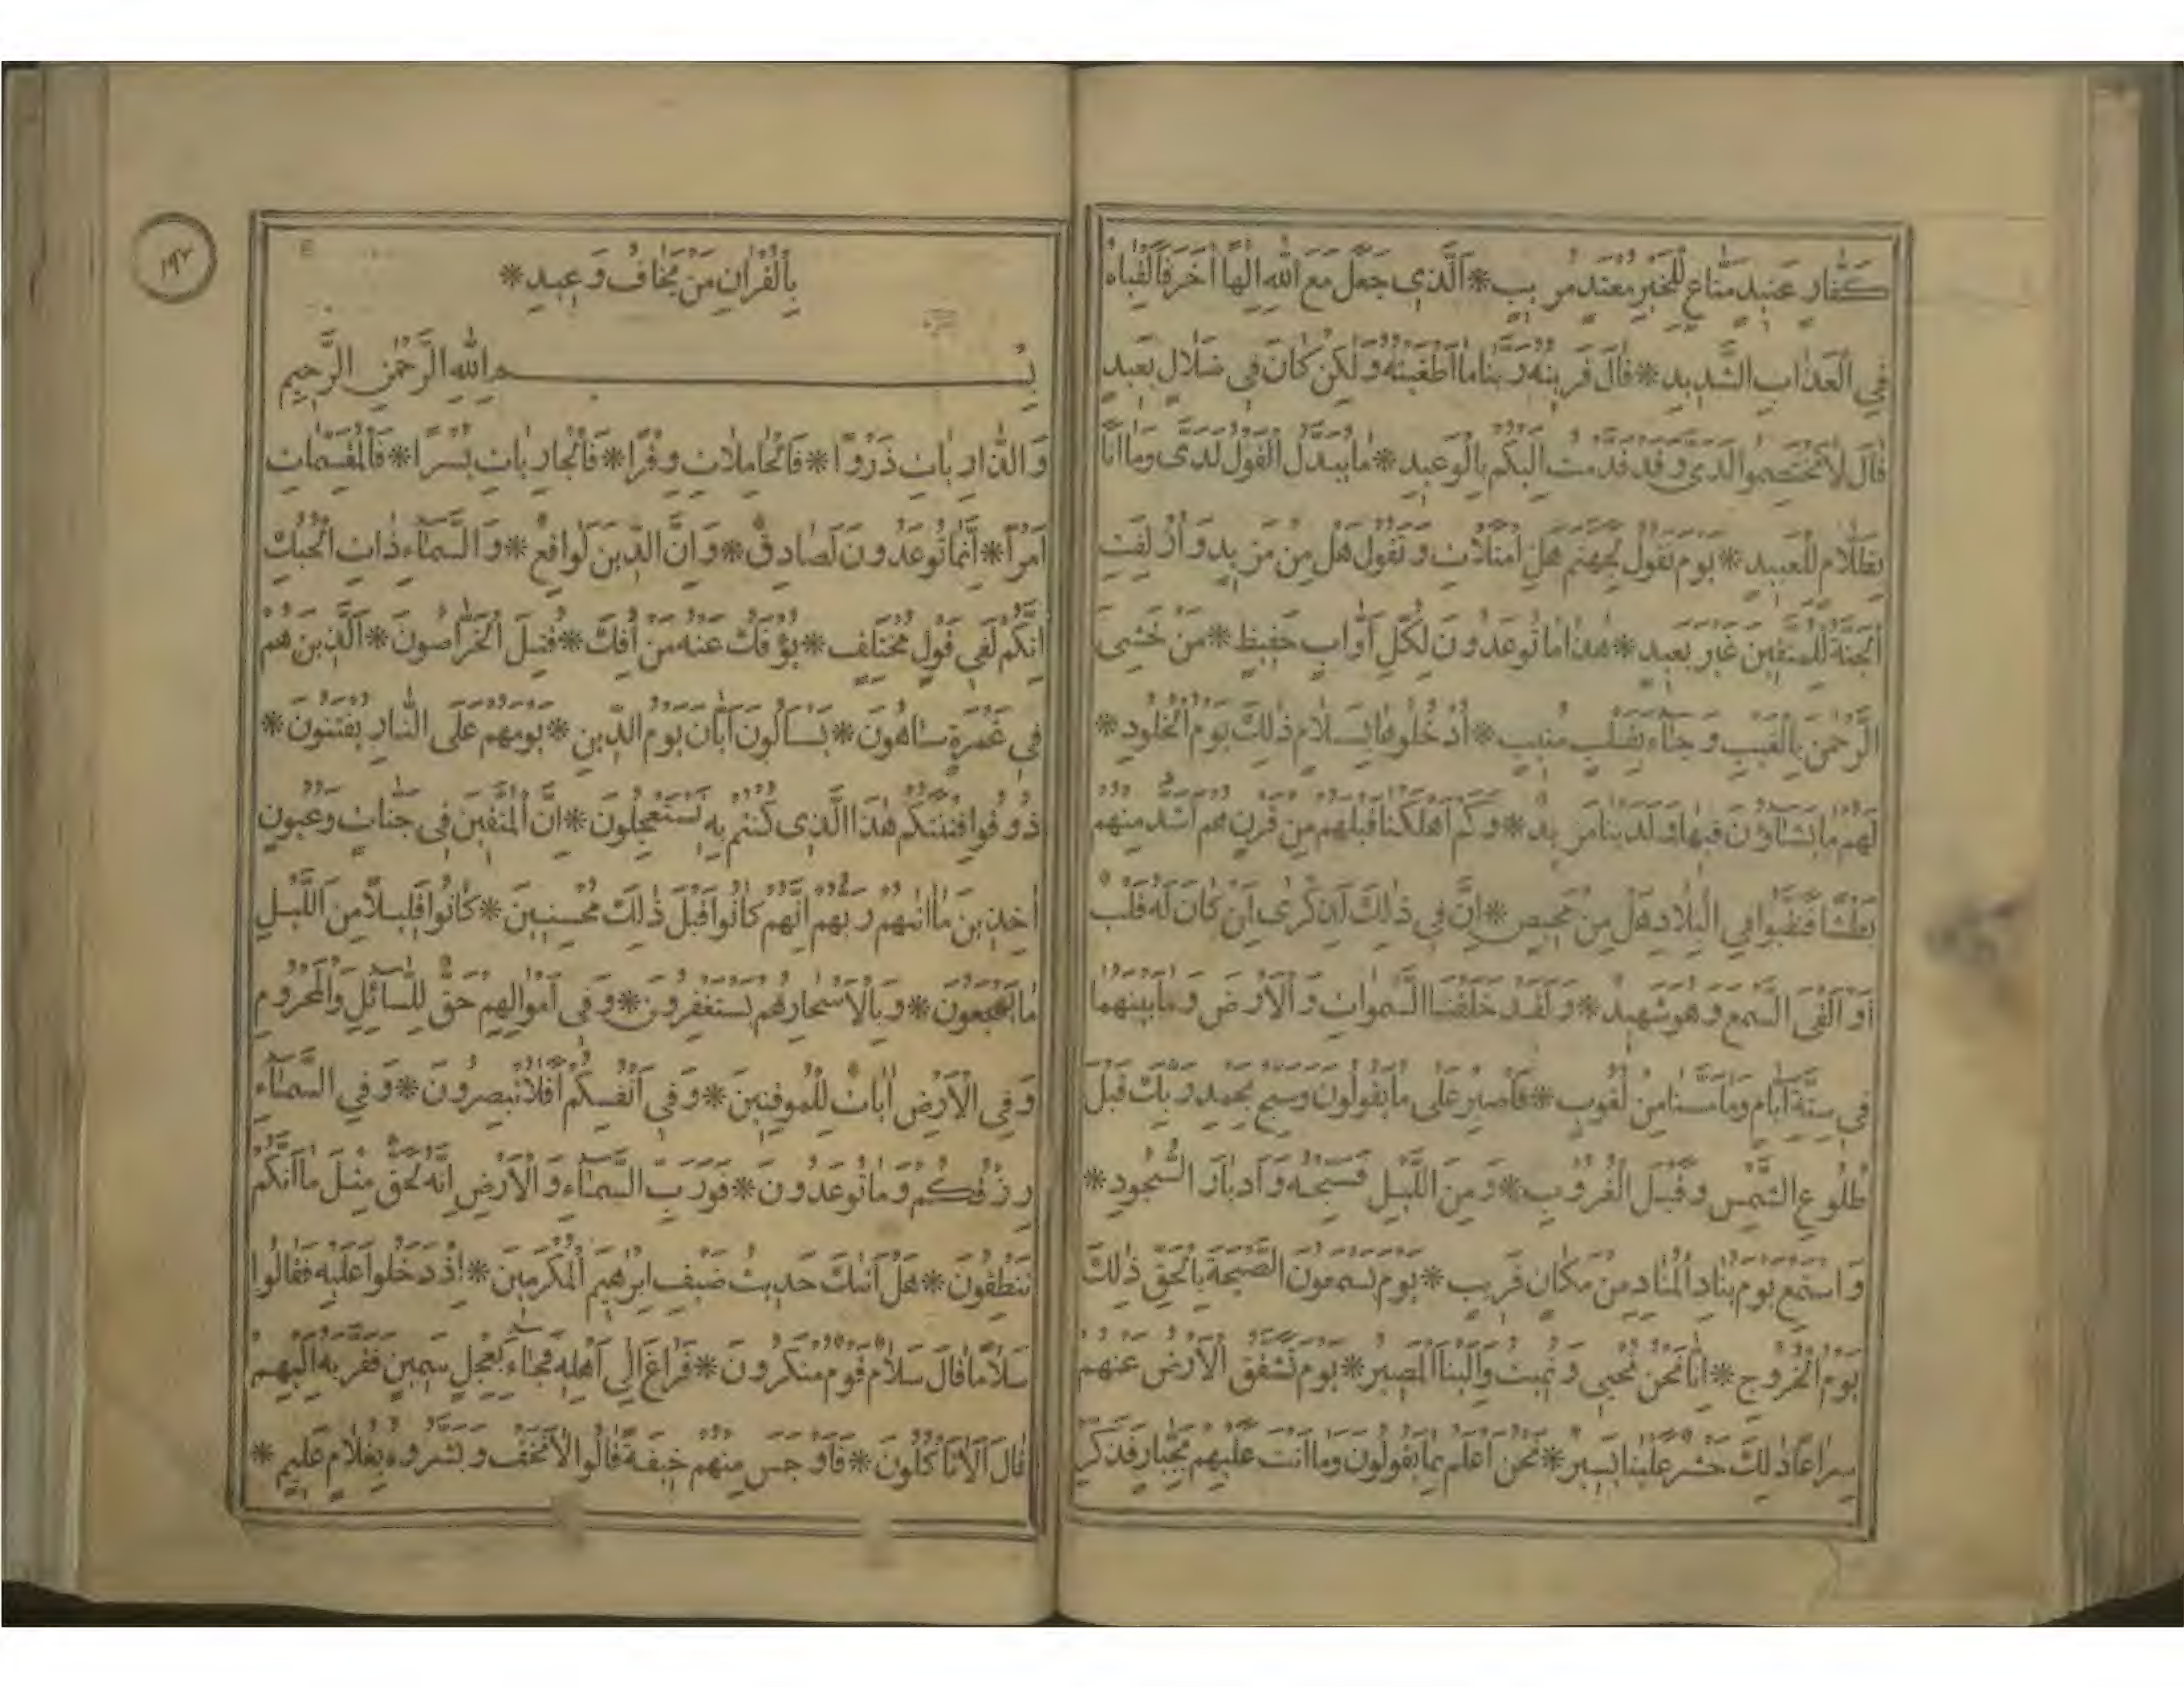 كَفَّارٍ عَنِيدٍ مَنَّاعٍ لِلْخَيْرِ مُعْتَدٍ مُرِيبٍ * اَلَّذِي جَعَلَ مَعَ اللّٰهِ اِلٰهًا اٰخَرَ فَاَلْقِيَاهُ
فِي الْعَذَابِ الشَّدِيدِ * قَالَ قَرِينُهُ رَبَّنَا مَا اَطْغَيْتُهُ وَلٰكِنْ كَانَ فِي ضَلَالٍ بَعِيدٍ
قَالَ لَا تَخْتَصِمُوا لَدَيَّ وَقَدْ قَدَّمْتُ اِلَيْكُمْ بِالْوَعِيدِ * مَا يُبَدَّلُ الْقَوْلُ لَدَيَّ وَمَا اَنَا
بِظَلَّامٍ لِلْعَبِيدِ * يَوْمَ نَقُولُ لِجَهَنَّمَ هَلِ امْتَلَأْتِ وَتَقُولُ هَلْ مِنْ مَزِيدٍ وَاُزْلِفَتِ
الْجَنَّةُ لِلْمُتَّقِينَ غَيْرَ بَعِيدٍ * هٰذَا مَا تُوعَدُونَ لِكُلِّ اَوَّابٍ حَفِيظٍ * مَنْ خَشِيَ
الرَّحْمٰنَ بِالْغَيْبِ وَجَاءَ بِقَلْبٍ مُنِيبٍ * اُدْخُلُوهَا بِسَلَامٍ ذٰلِكَ يَوْمُ الْخُلُودِ *
لَهُمْ مَا يَشَاؤُنَ فِيهَا وَلَدَيْنَا مَزِيدٌ * وَكَمْ اَهْلَكْنَا قَبْلَهُمْ مِنْ قَرْنٍ هُمْ اَشَدُّ مِنْهُمْ
بَطْشًا فَنَقَّبُوا فِي الْبِلَادِ هَلْ مِنْ مَحِيصٍ * اِنَّ فِي ذٰلِكَ لَذِكْرٰى لِمَنْ كَانَ لَهُ قَلْبٌ
اَوْ اَلْقَى السَّمْعَ وَهُوَ شَهِيدٌ * وَلَقَدْ خَلَقْنَا السَّمٰوَاتِ وَالْاَرْضَ وَمَا بَيْنَهُمَا
فِي سِتَّةِ اَيَّامٍ وَمَا مَسَّنَا مِنْ لُغُوبٍ * فَاصْبِرْ عَلٰى مَا يَقُولُونَ وَسَبِّحْ بِحَمْدِ رَبِّكَ قَبْلَ
طُلُوعِ الشَّمْسِ وَقَبْلَ الْغُرُوبِ * وَمِنَ اللَّيْلِ فَسَبِّحْهُ وَاَدْبَارَ السُّجُودِ *
وَاسْتَمِعْ يَوْمَ يُنَادِ الْمُنَادِ مِنْ مَكَانٍ قَرِيبٍ * يَوْمَ يَسْمَعُونَ الصَّيْحَةَ بِالْحَقِّ ذٰلِكَ
يَوْمُ الْخُرُوجِ * اِنَّا نَحْنُ نُحْيِي وَنُمِيتُ وَاِلَيْنَا الْمَصِيرُ * يَوْمَ تَشَقَّقُ الْاَرْضُ عَنْهُمْ
سِرَاعًا ذٰلِكَ حَشْرٌ عَلَيْنَا يَسِيرٌ * نَحْنُ اَعْلَمُ بِمَا يَقُولُونَ وَمَا اَنْتَ عَلَيْهِمْ بِجَبَّارٍ فَذَكِّرْ
١٩٢
بِالْقُرْاٰنِ مَنْ يَخَافُ وَعِيدِ *
بِسْمِ اللّٰهِ الرَّحْمٰنِ الرَّحِيمِ
وَالذَّارِيَاتِ ذَرْوًا * فَالْحَامِلَاتِ وِقْرًا * فَالْجَارِيَاتِ يُسْرًا * فَالْمُقَسِّمَاتِ
اَمْرًا * اِنَّمَا تُوعَدُونَ لَصَادِقٌ * وَاِنَّ الدِّينَ لَوَاقِعٌ * وَالسَّمَاءِ ذَاتِ الْحُبُكِ
اِنَّكُمْ لَفِي قَوْلٍ مُخْتَلِفٍ * يُؤْفَكُ عَنْهُ مَنْ اُفِكَ * قُتِلَ الْخَرَّاصُونَ * اَلَّذِينَ هُمْ
فِي غَمْرَةٍ سَاهُونَ * يَسْاَلُونَ اَيَّانَ يَوْمُ الدِّينِ * يَوْمَ هُمْ عَلَى النَّارِ يُفْتَنُونَ *
ذُوقُوا فِتْنَتَكُمْ هٰذَا الَّذِي كُنْتُمْ بِهِ تَسْتَعْجِلُونَ * اِنَّ الْمُتَّقِينَ فِي جَنَّاتٍ وَعُيُونٍ
اٰخِذِينَ مَا اٰتٰيهُمْ رَبُّهُمْ اِنَّهُمْ كَانُوا قَبْلَ ذٰلِكَ مُحْسِنِينَ * كَانُوا قَلِيلًا مِنَ اللَّيْلِ
مَا يَهْجَعُونَ * وَبِالْاَسْحَارِ هُمْ يَسْتَغْفِرُونَ * وَفِي اَمْوَالِهِمْ حَقٌّ لِلسَّائِلِ وَالْمَحْرُومِ
وَفِي الْاَرْضِ اٰيَاتٌ لِلْمُوقِنِينَ * وَفِي اَنْفُسِكُمْ اَفَلَا تُبْصِرُونَ * وَفِي السَّمَاءِ
رِزْقُكُمْ وَمَا تُوعَدُونَ * فَوَرَبِّ السَّمَاءِ وَالْاَرْضِ اِنَّهُ لَحَقٌّ مِثْلَ مَا اَنَّكُمْ
تَنْطِقُونَ * هَلْ اَتٰيكَ حَدِيثُ ضَيْفِ اِبْرٰهِيمَ الْمُكْرَمِينَ * اِذْ دَخَلُوا عَلَيْهِ فَقَالُوا
سَلَامًا قَالَ سَلَامٌ قَوْمٌ مُنْكَرُونَ * فَرَاغَ اِلٰى اَهْلِهِ فَجَاءَ بِعِجْلٍ سَمِينٍ فَقَرَّبَهُ اِلَيْهِمْ
قَالَ اَلَا تَاْكُلُونَ * فَاَوْجَسَ مِنْهُمْ خِيفَةً قَالُوا لَا تَخَفْ وَبَشَّرُوهُ بِغُلَامٍ عَلِيمٍ *